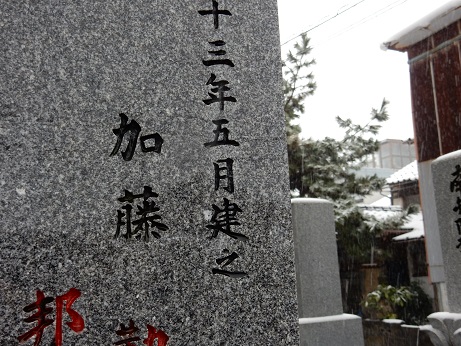 十三年五月建之
加藤
邦